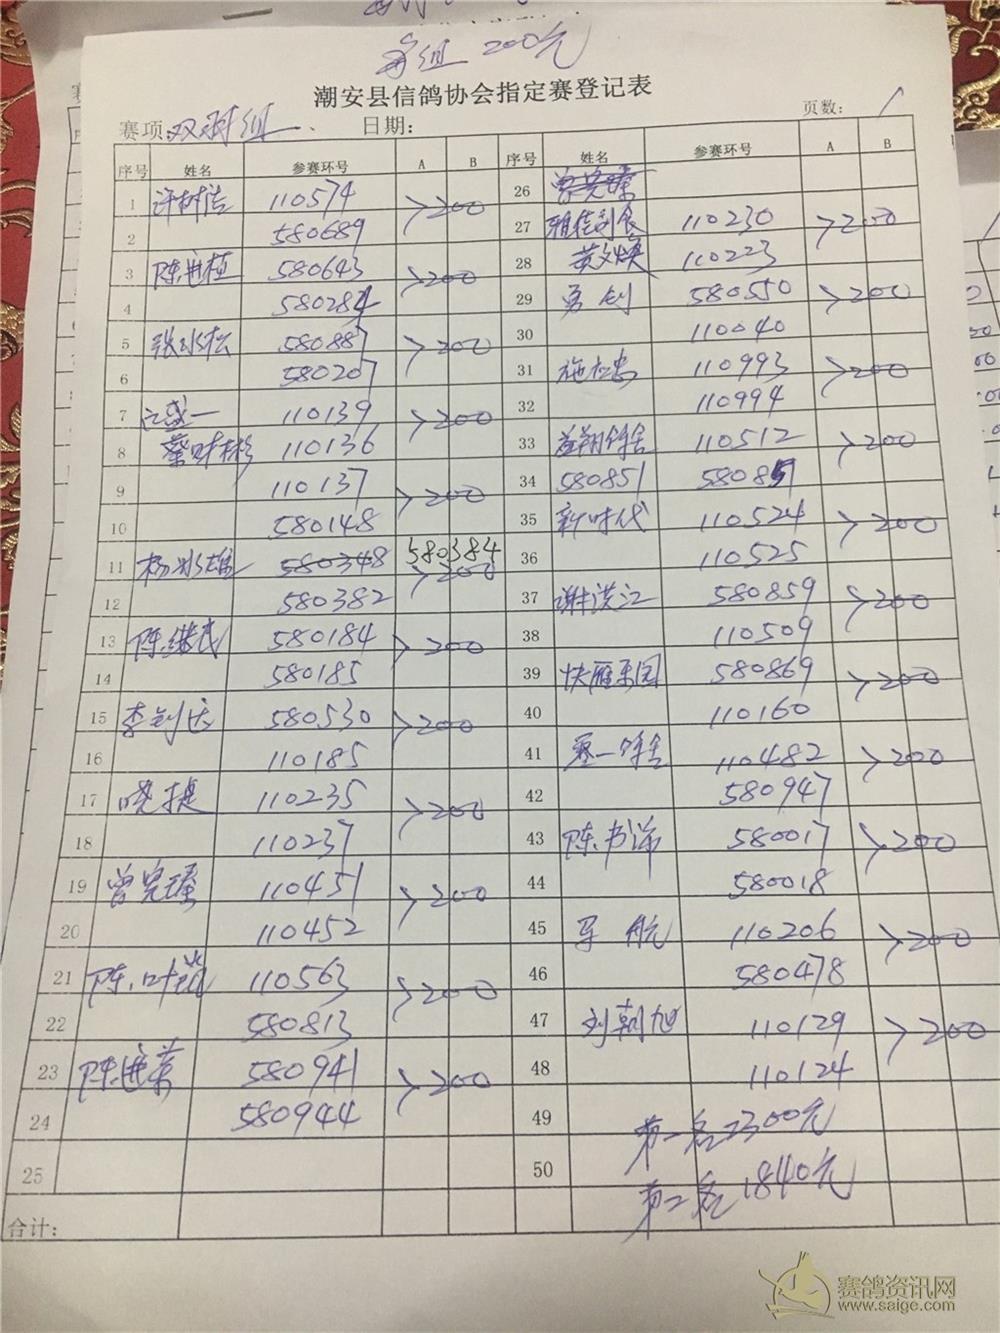 每组 200元
潮安县信鸽协会指定赛登记表
赛项: 双羽组 日期: 页数: 1
序号 姓名 参赛环号 A B 序号 姓名 参赛环号 A B
1 许树浩 110574 >200 26
2 580689 27 110230 >200
3 陈进植 580643 >200 28 黄文焕 110223
4 580284 29 勇创 580550 >200
5 张水松 580887 >200 30 110040
6 580207 31 110993 >200
7 江盛一 110139 >200 32 110994
8 蔡财彬 110136 33 110512 >200
9 110137 >200 34 580851 580851
10 580148 35 新时代 110524 >200
11 杨冰雄 580348 580384 >200 36 110525
12 580382 37 谢洪江 580859 >200
13 陈继民 580184 >200 38 110509
14 580185 39 580869 >200
15 李钊庆 580530 >200 40 110160
16 110185 41 110482 >200
17 晓捷 110235 >200 42 580947
18 110237 43 陈书沛 580017 >200
19 110451 >200 44 580018
20 110452 45 军航 110206 >200
21 110563 >200 46 580478
22 580813 47 刘朝旭 110129 >200
23 陈进荣 580941 >200 48 110124
24 580944 49 第一名2300元
25 50 第二名1840元
合计:
赛鸽资讯网
www.saige.com